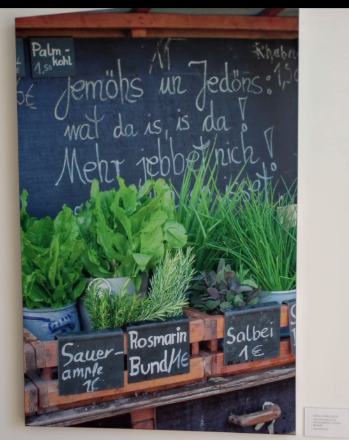 Palm-
kohl
1,50
Jemöhs un Jedöns:
wat da is, is da!
Mehr jebbet nich!
Sauer-
ampfe
1€
Rosmarin
Bund/1€
Salbei
1€